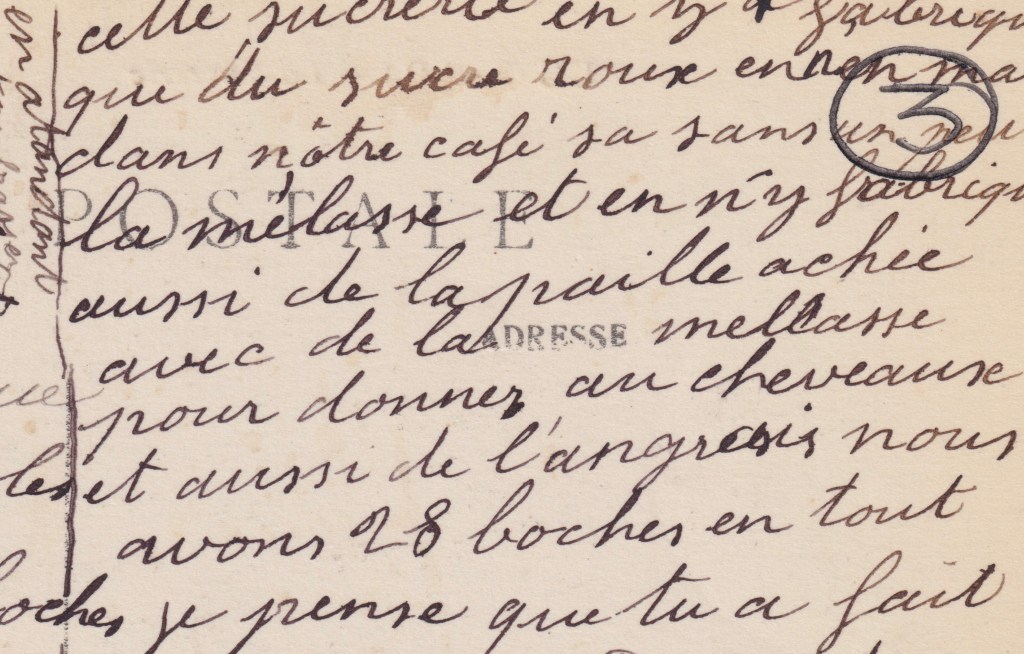 cette sucrerie en y a fabriqu
que du sucre roux en n'en ma
3
dans nôtre café sa sans un peu
la mélasse et en n'y fabriqu
POSTALE
aussi de la paille achée
avec de la mellasse
ADRESSE
pour donner au cheveaux
et aussi de l'angrais nous
avons 28 boches en tout
je pense que tu a fait
en atandant
les
oches